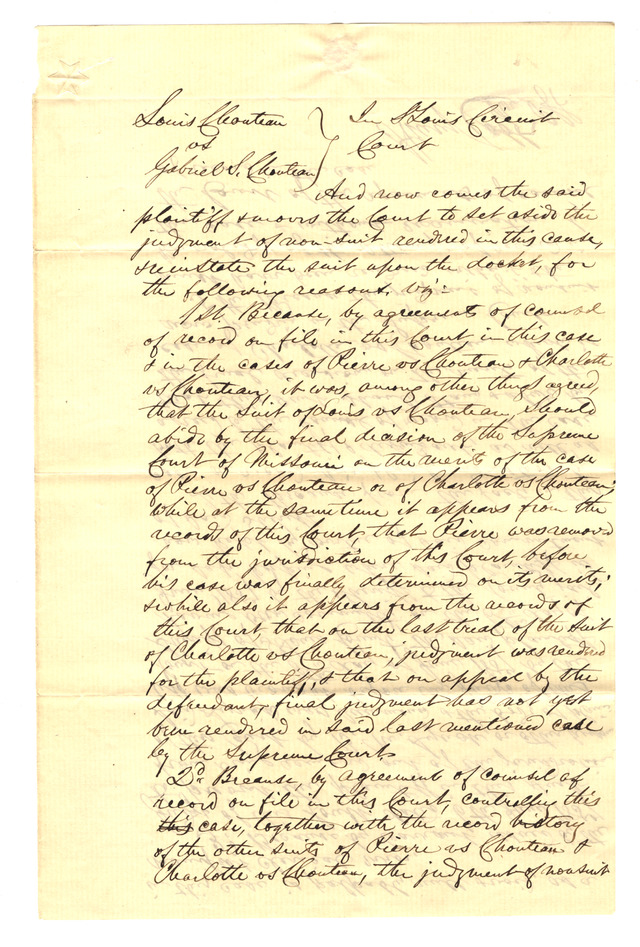 Louis Chouteau } In St Louis Circuit
vs } Court
Gabriel S. Chouteau
And now comes the said
plaintiff & moves the Court to set aside the
judgment of non-suit rendered in this cause,
& reinstate the suit upon the docket, for
the following reasons, viz:
1st. Because, by agreements of counsel
of record on file in this Court in this case
& in the cases of Pierre vs Chouteau & Charlotte
vs Chouteau, it was, among other things agreed,
that the Suit of Louis vs Chouteau, should
abide by the final decision of the Supreme
Court of Missouri on the merits of the case
of Pierre vs Chouteau or of Charlotte vs Chouteau;
while at the same time it appears from the
records of this Court, that Pierre was removed
from the jurisdiction of this Court, before
his case was finally determined on its merits;
& while also it appears from the records of
this Court, that on the last trial of the suit
of Charlotte vs Chouteau, judgment was rendered
for the plaintiff, & that on appeal by the
defendant, final judgment has not yet
been rendered in said last mentioned case
by the Supreme Court.
2d. Because, by agreement of counsel of
record on file in this Court, controlling this
this case, together with the record history
of the other suits of Pierre vs Chouteau &
Charlotte vs Chouteau, the judgment of nonsuit